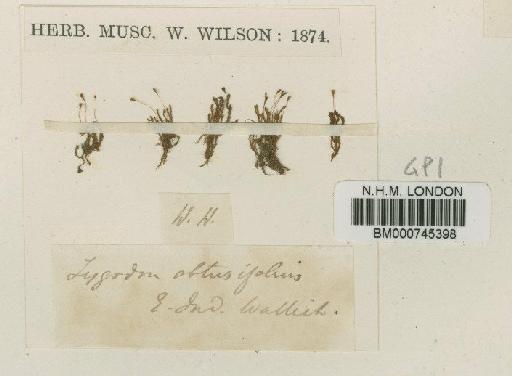 HERB. MUSC. W. WILSON: 1874.
GPI
N.H.M. LONDON
BM000745398
W. H.
Zygodon obtusifolius
E. Ind. Wallich.